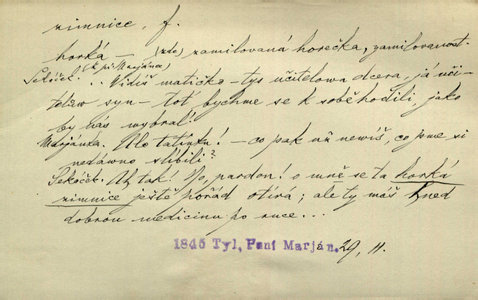 zimnice, f.
horká – (zde) zamilovaná horečka, zamilovanost.
Sekáček (k pí Marjánce) ... Vidíš matičko – tys učitelova dcera, já uči-
telův syn – toť bychme se k sobě hodili, jako
by nás vybral!
Marjánka. Ale tatínku! – co pak už nevíš, co jsme si
nedávno slíbili?
Sekáček. Ah tak! No, pardon! o mně se ta horká
zimnice ještě pořád otírá; ale ty máš hned
dobrou medicinu po ruce...
1845 Tyl, Paní Marján. 29, II.